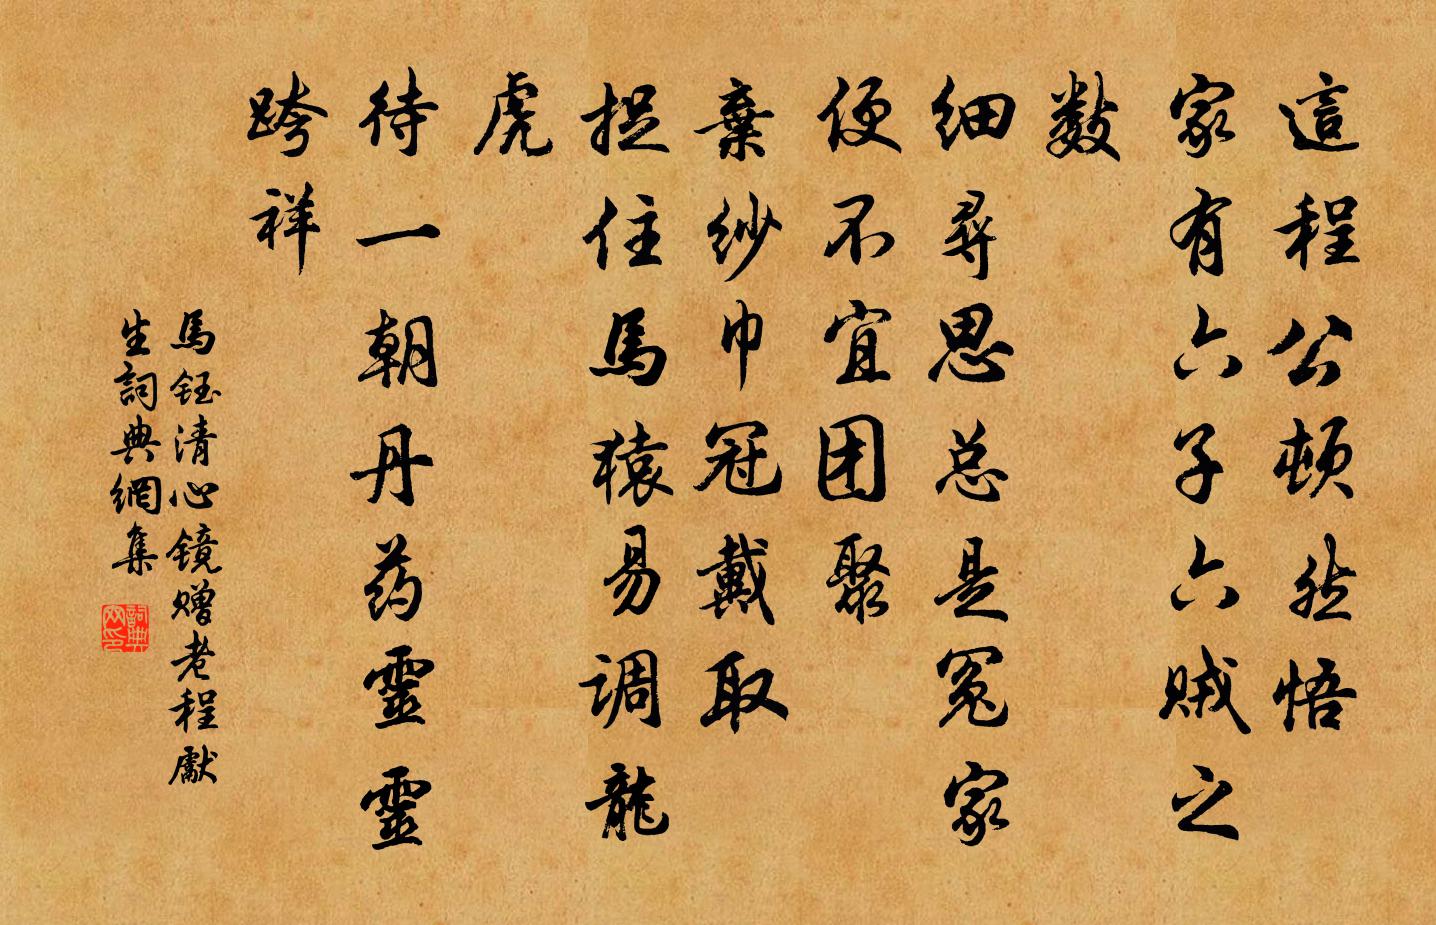 這程公頓然悟
家有六子六贼之
数
细尋思总是冤家
便不宜团聚
棄纱巾冠戴取
捉住馬猿易调龍
虎
待一朝丹药靈靈
跨祥
馬鈺清心镜赠老程獻
生詞典網集
詞典网印